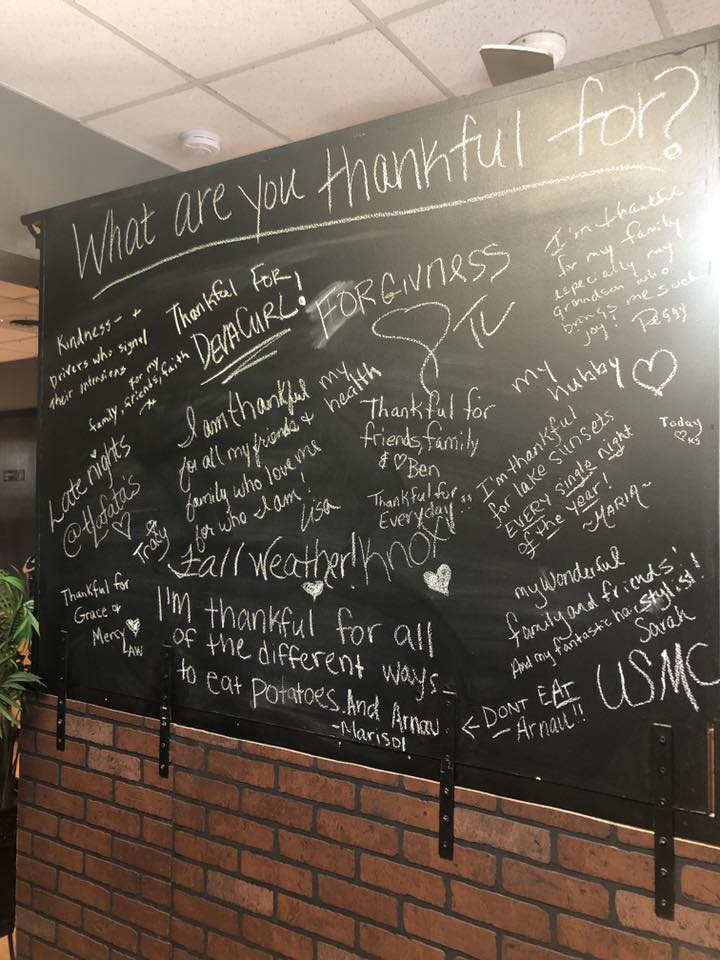 What are you thankful for?
Kindness - +
Drivers who signal
their intensions
for my
family, friends, faith
Thankful FOR
DEVACURL!
FORGIVNESS
TV
I'm thankful
for my family
especially my
grandson who
brings me such
joy! Peggy
my hubby
Today
Late nights
@Hafata's
& Trudy
I am thankful
for all my friends &
family who love me
for who I am!
Lisa
my
health
Thankful for
friends, family
& Ben
Thankful for
Everyday!!
I'm thankful
for lake sunsets
EVERY single night
of the year!
~MARIA~
Fall Weather!
Knox
Thankful for
Grace &
Mercy
LAW
I'M thankful for all
of the different ways
to eat potatoes. And Arnav
-Marisol
← DONT EAT
Arnav!!
my Wonderful
family and friends!
And my fantastic hairstylist!
Sarah
USMC